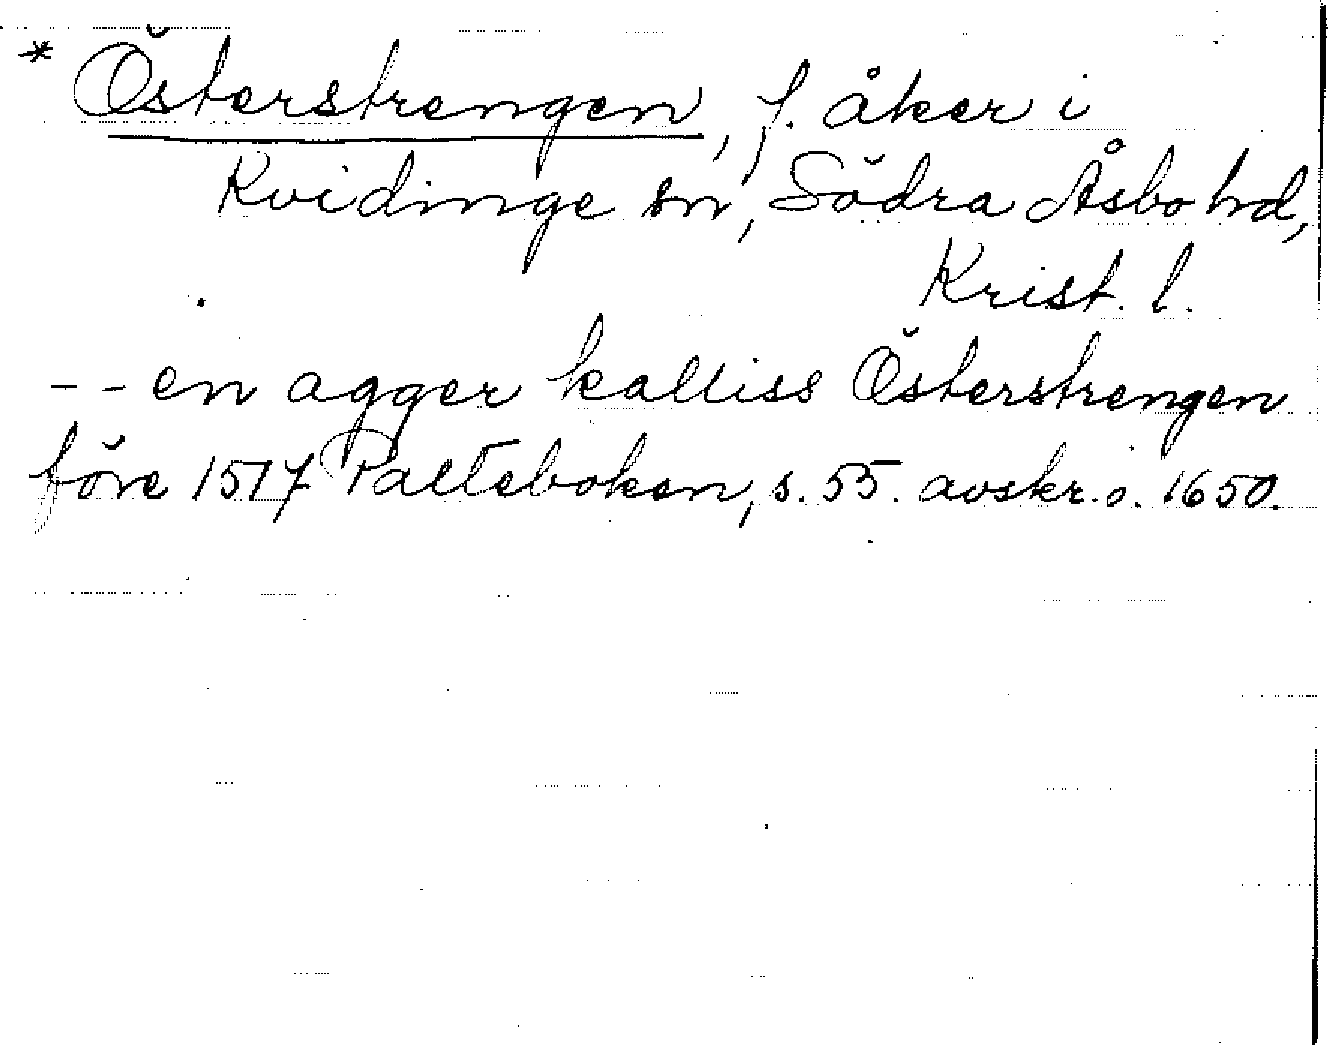 * Österstrengen, f. åker i
Kvidinge sn, Södra Åsbo hd,
Krist. l.
-- en agger kalliss Österstrengen
före 1517 Palteboken, s. 55. avskr. o. 1650.